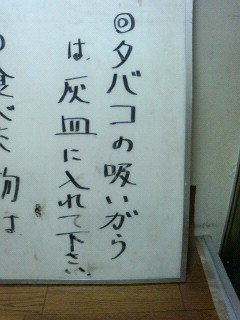 ◎タバコの吸いがら
は、灰皿に入れて下さい。
の食べた物は